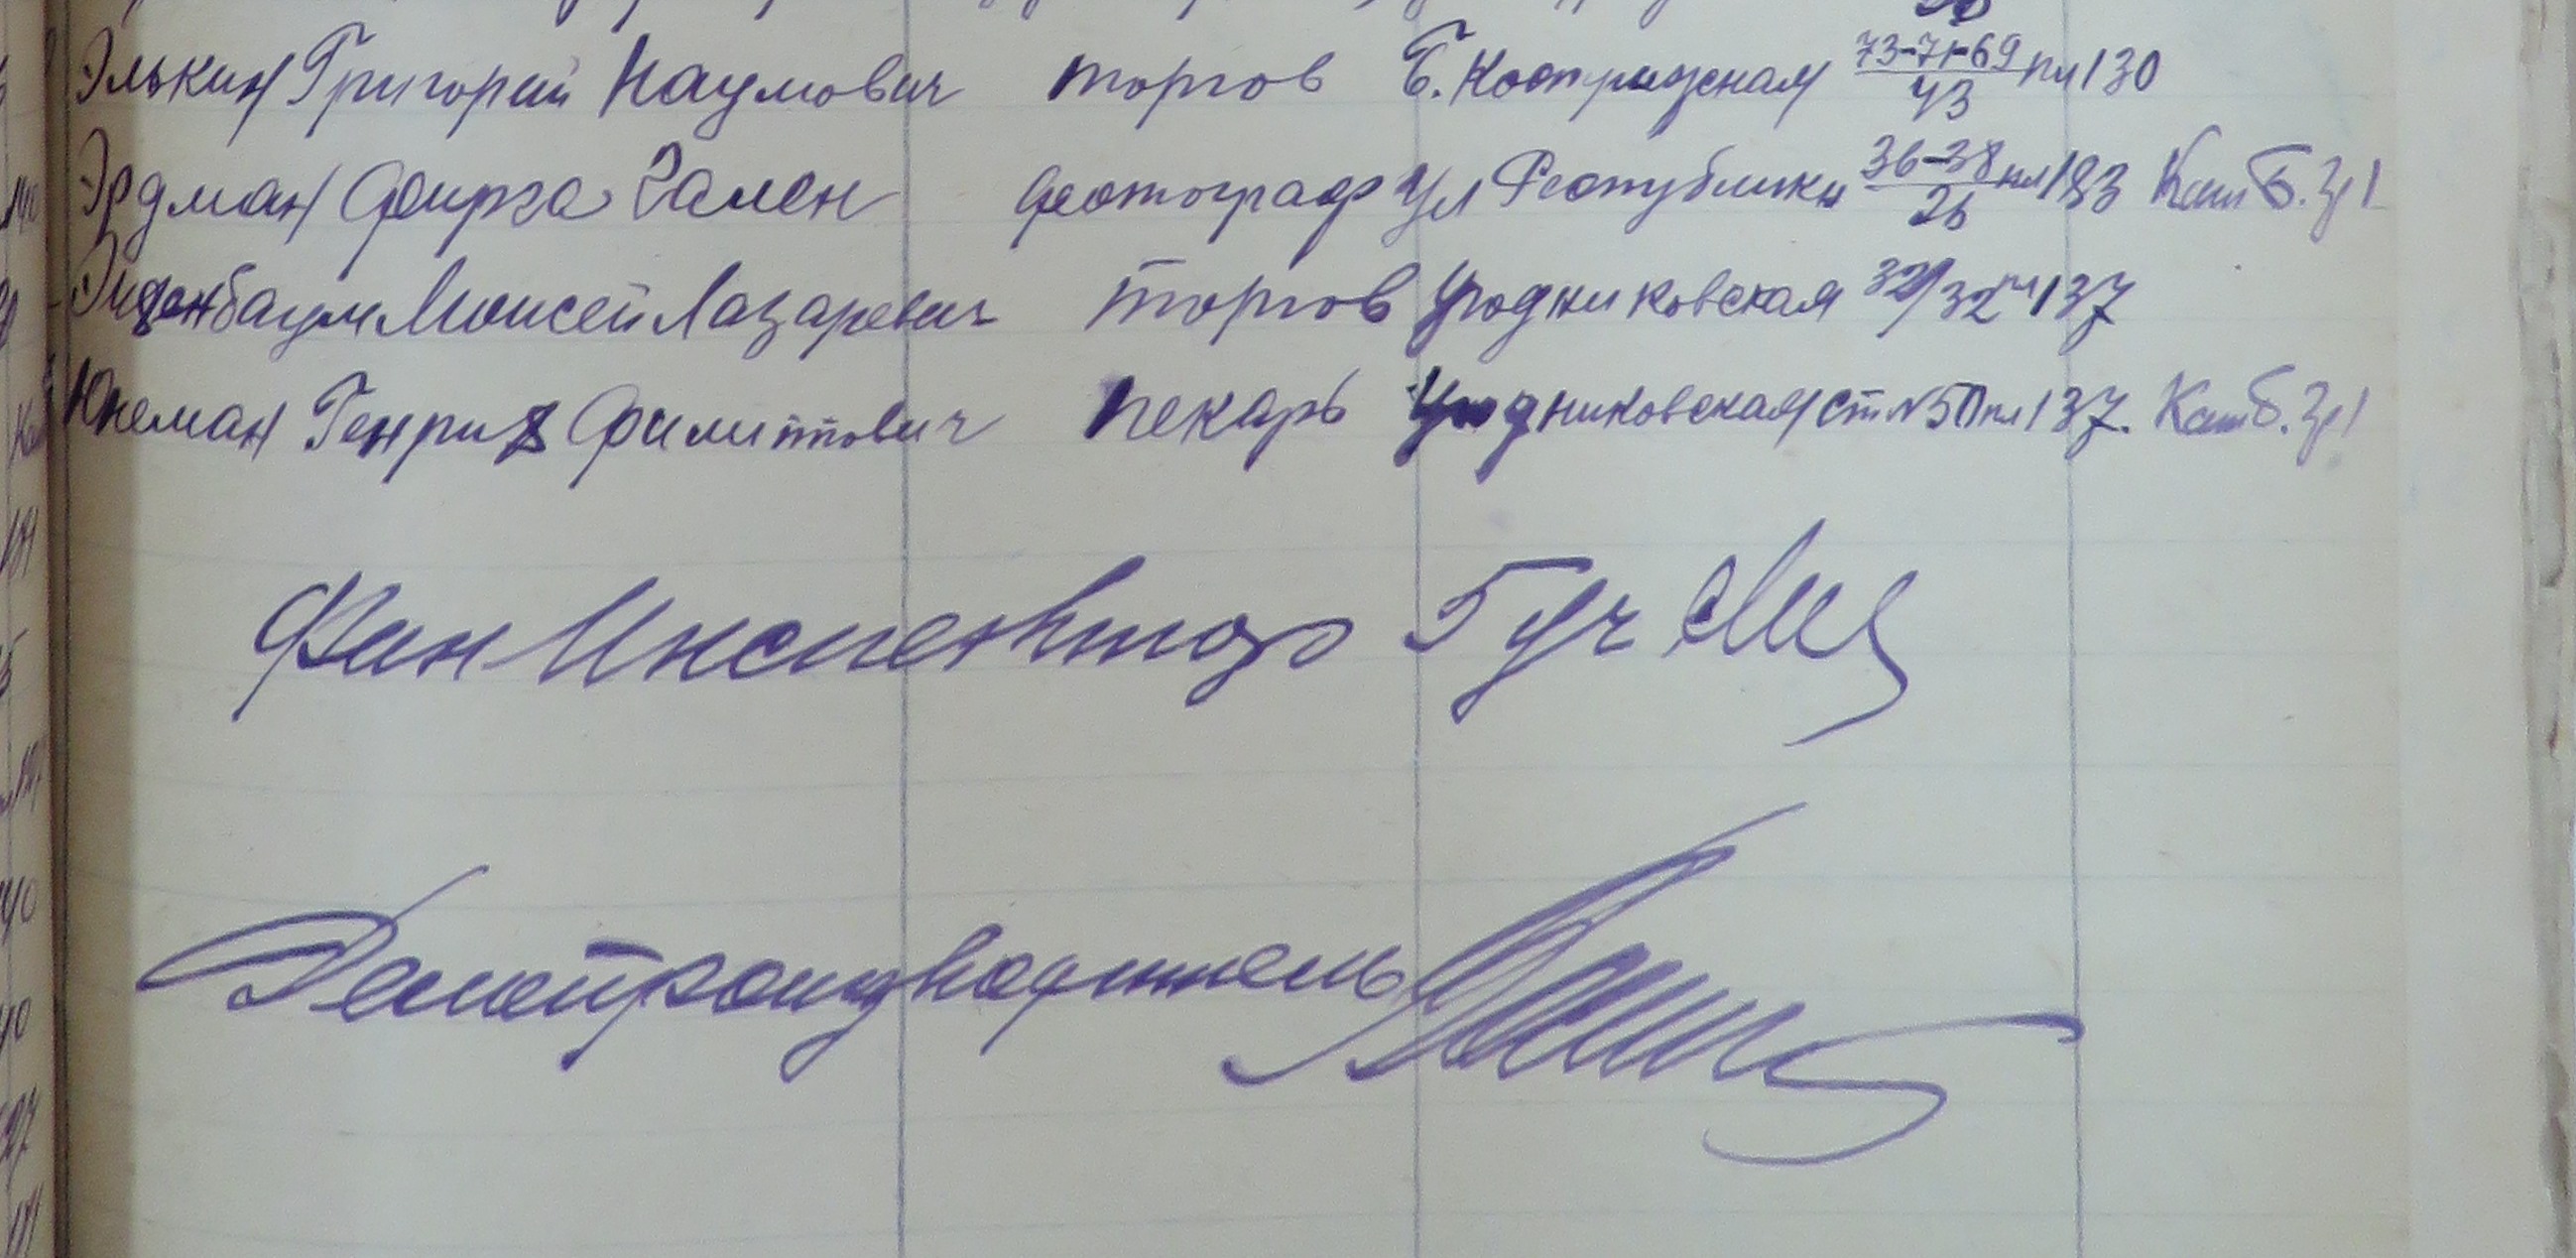 Элькин Григорий Наумович торгов Б. Костриженая 73-71-69/43 пл 130
Эрдман Фирга Зален фотограф Ул Республики 36-38/26 пл 183 Кат Б. Зр 1
Моисей Лазаревич торгов Уродниковская 32/32 пл 137
Юнеман Генрих Филиппович пекарь Уродниковская ст № 50 пл 137. Кат Б. Зр 1
Фин Инспектор 5 уч
Делопроизводитель